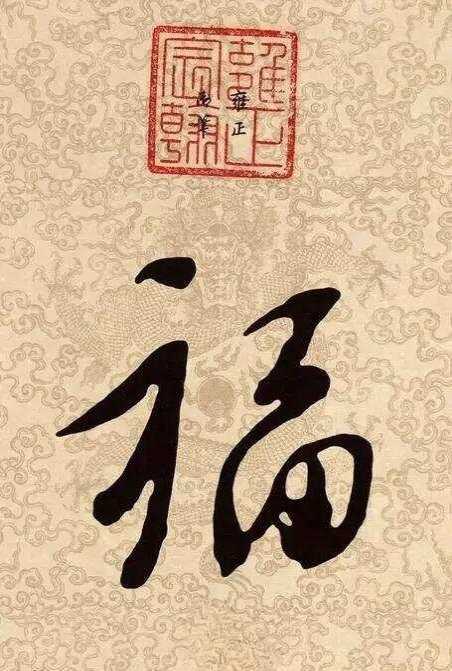 雍正
宸翰
雍正
御筆
福